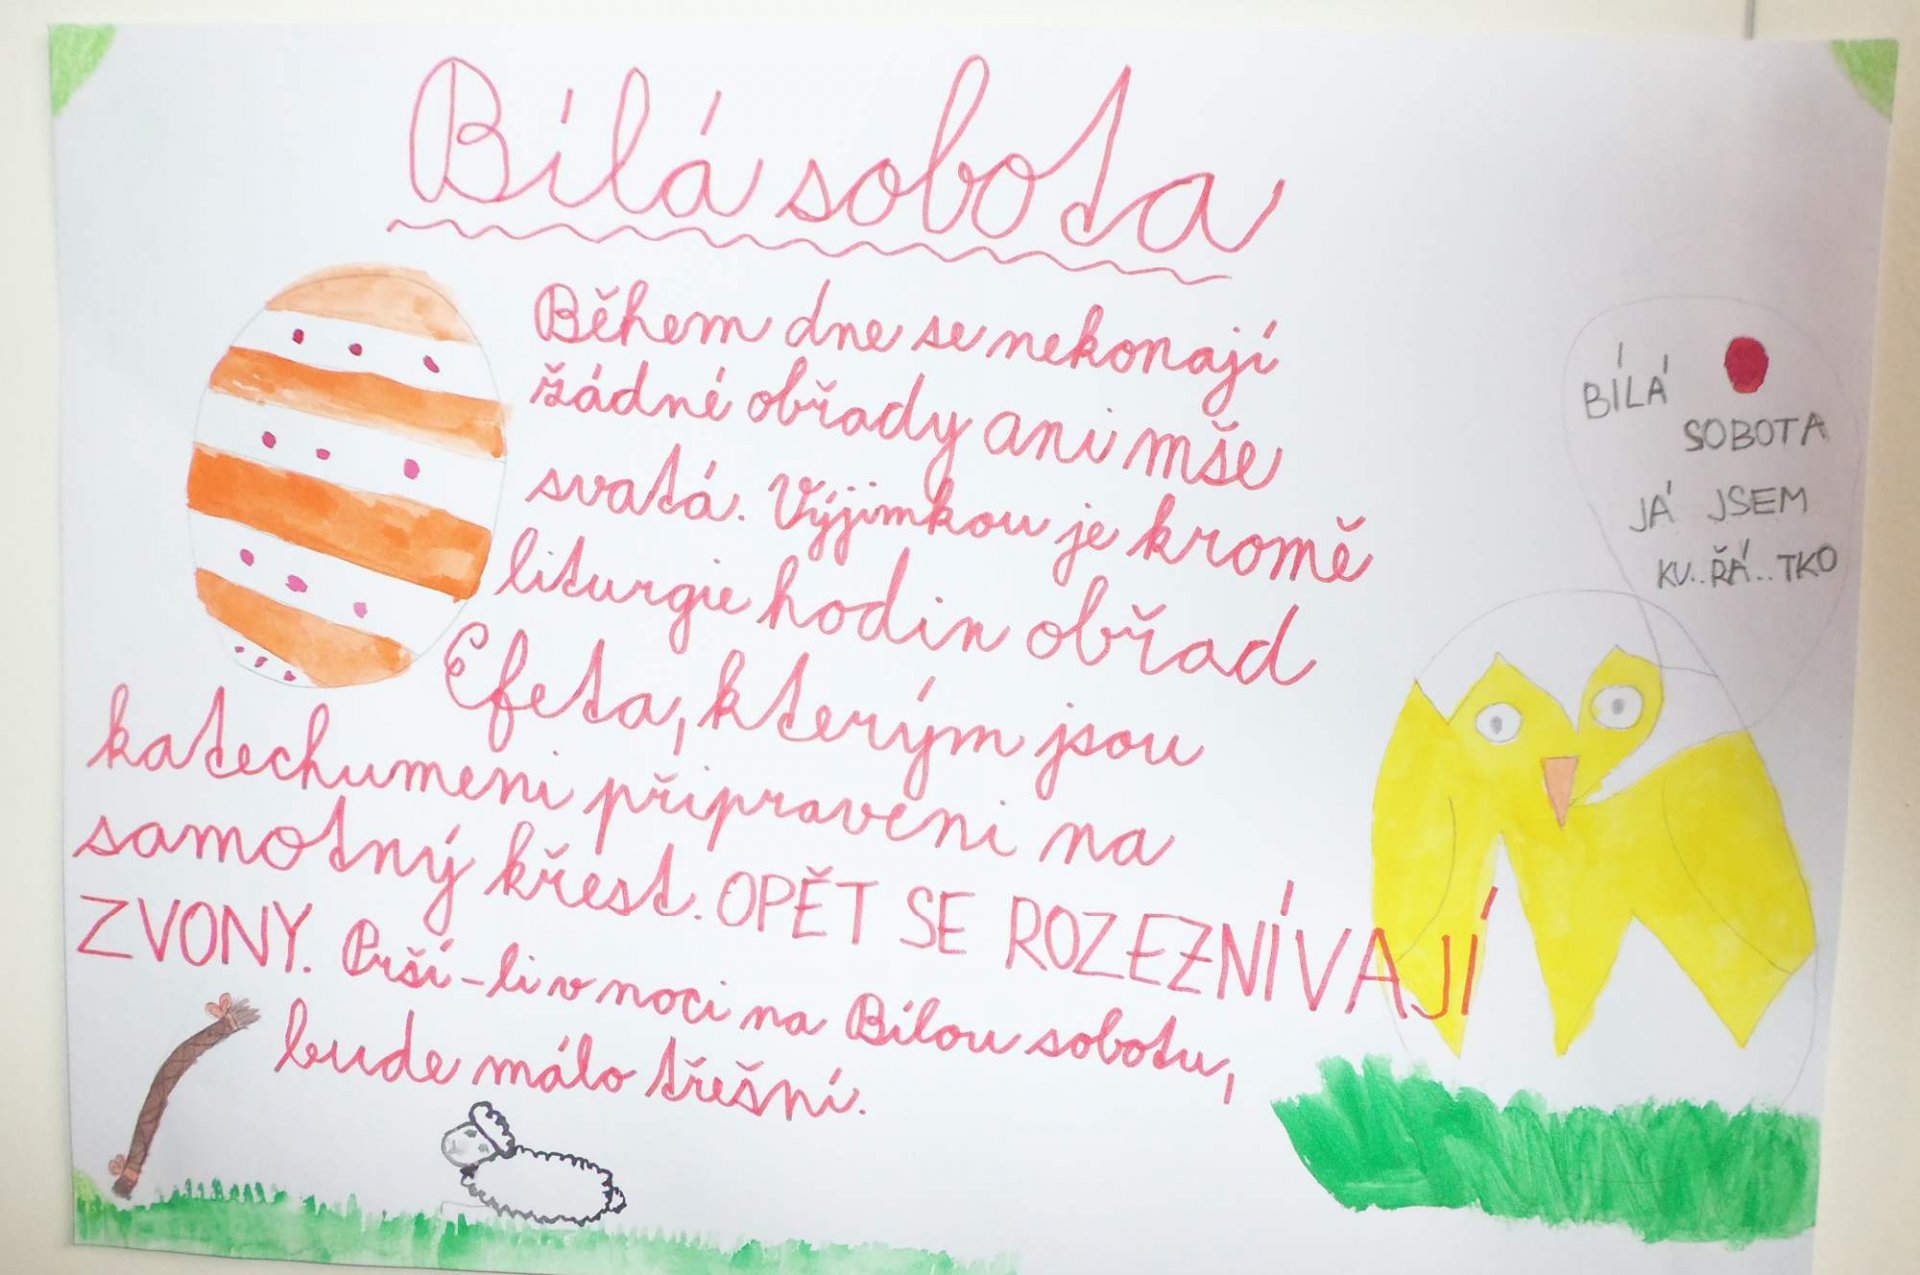 Bílá sobota
Během dne se nekonají
žádné obřady ani mše
svatá. Výjimkou je kromě
liturgie hodin obřad
Efeta, kterým jsou
katechumeni připraveni na
samotný křest. OPĚT SE ROZEZNÍVAJÍ
ZVONY. Prší-li v noci na Bílou sobotu,
bude málo třešní.
BÍLÁ
SOBOTA
JÁ JSEM
KU..ŘÁ..TKO